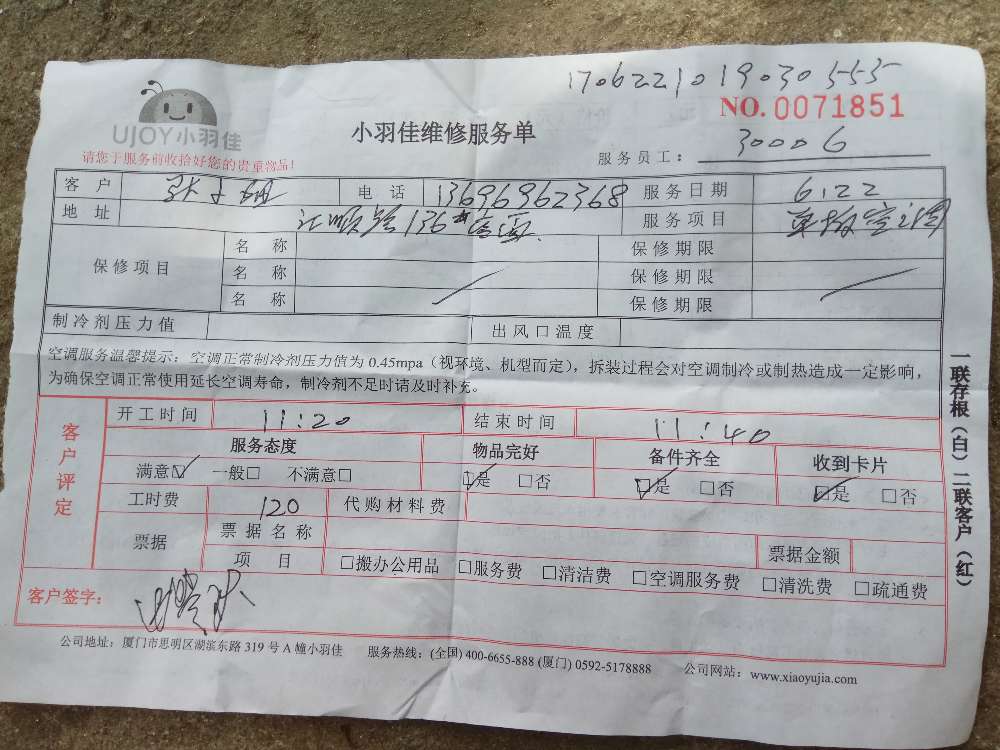 17062210 19030555
UJOY小羽佳
小羽佳维修服务单
NO.0071851
请您于服务前收拾好您的贵重物品!
服务员工: 30006
客户 电话 13696962368 服务日期 6.22
地址 136# 服务项目
保修项目 名称 保修期限
名称 保修期限
名称 保修期限
制冷剂压力值 出风口温度
空调服务温馨提示:空调正常制冷剂压力值为 0.45mpa(视环境、机型而定),拆装过程会对空调制冷或制热造成一定影响,
为确保空调正常使用延长空调寿命,制冷剂不足时请及时补充。
客户评定
开工时间 11:20 结束时间 11:40
服务态度 物品完好 备件齐全 收到卡片
满意☑ 一般□ 不满意□ ☑是 □否 ☑是 □否 ☑是 □否
工时费 120 代购材料费
票据 票据名称 票据金额
项目 □搬办公用品 □服务费 □清洁费 □空调服务费 □清洗费 □疏通费
客户签字:
一联存根(白)二联客户(红)
公司地址:厦门市思明区湖滨东路 319 号 A 幢小羽佳 服务热线:(全国) 400-6655-888 (厦门) 0592-5178888 公司网站:www.xiaoyujia.com